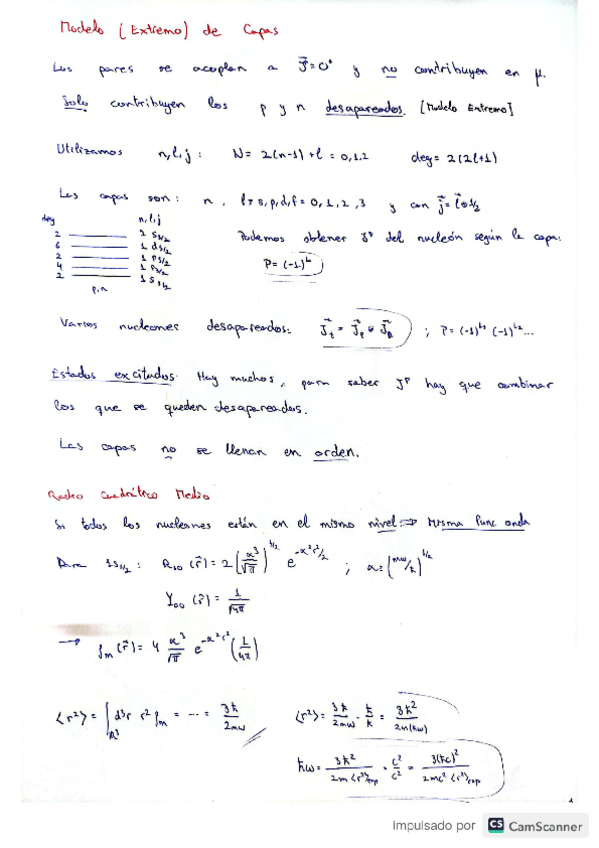 Modelo (Extremo) de Capas
Los pares se acoplan a J⃗=0⁺ y no contribuyen en μ.
Solo contribuyen los p y n desapareados. [Modelo Extremo]
Utilizamos n,l,j: N= 2(n-1)+l = 0,1,2 deg= 2(2l+1)
Las capas son: n, l= s,p,d,f = 0,1,2,3 y con j⃗= l⃗⊗1/2
deg n,l,j
2 2 s1/2
6 1 d5/2
2 1 p1/2
4 1 p3/2
2 1 s1/2
p,n
Podemos obtener Jᵖ del nucleón según la capa:
P= (-1)ᴸ
Varios nucleones desapareados: J⃗t = J⃗p ⊗ J⃗n ; P= (-1)ᴸ¹ (-1)ᴸ²...
Estados excitados. Hay muchos, para saber Jᴾ hay que combinar
los que se queden desapareados.
Las capas no se llenan en orden.
Radio Cuadrático Medio
Si todos los nucleones están en el mismo nivel ⇒ Misma func onda
Para 1s1/2: R10 (r⃗)= 2 (α³/√π)^1/2 e^-α²r²/2 ; α=(mω/ħ)^1/2
Y00 (r̂)= 1/√4π
→ ρm(r⃗)= 4 α³/√π e^-α²r² (1/4π)
⟨r²⟩= ∫R³ d³r r² ρm = ... = 3ħ/2mω
⟨r²⟩= 3ħ/2mω · ħ/ħ = 3ħ²/2m(ħω)
ħω= 3ħ²/2m⟨r²⟩exp · c²/c² = 3(ħc)²/2mc²⟨r²⟩exp
Impulsado por CS CamScanner